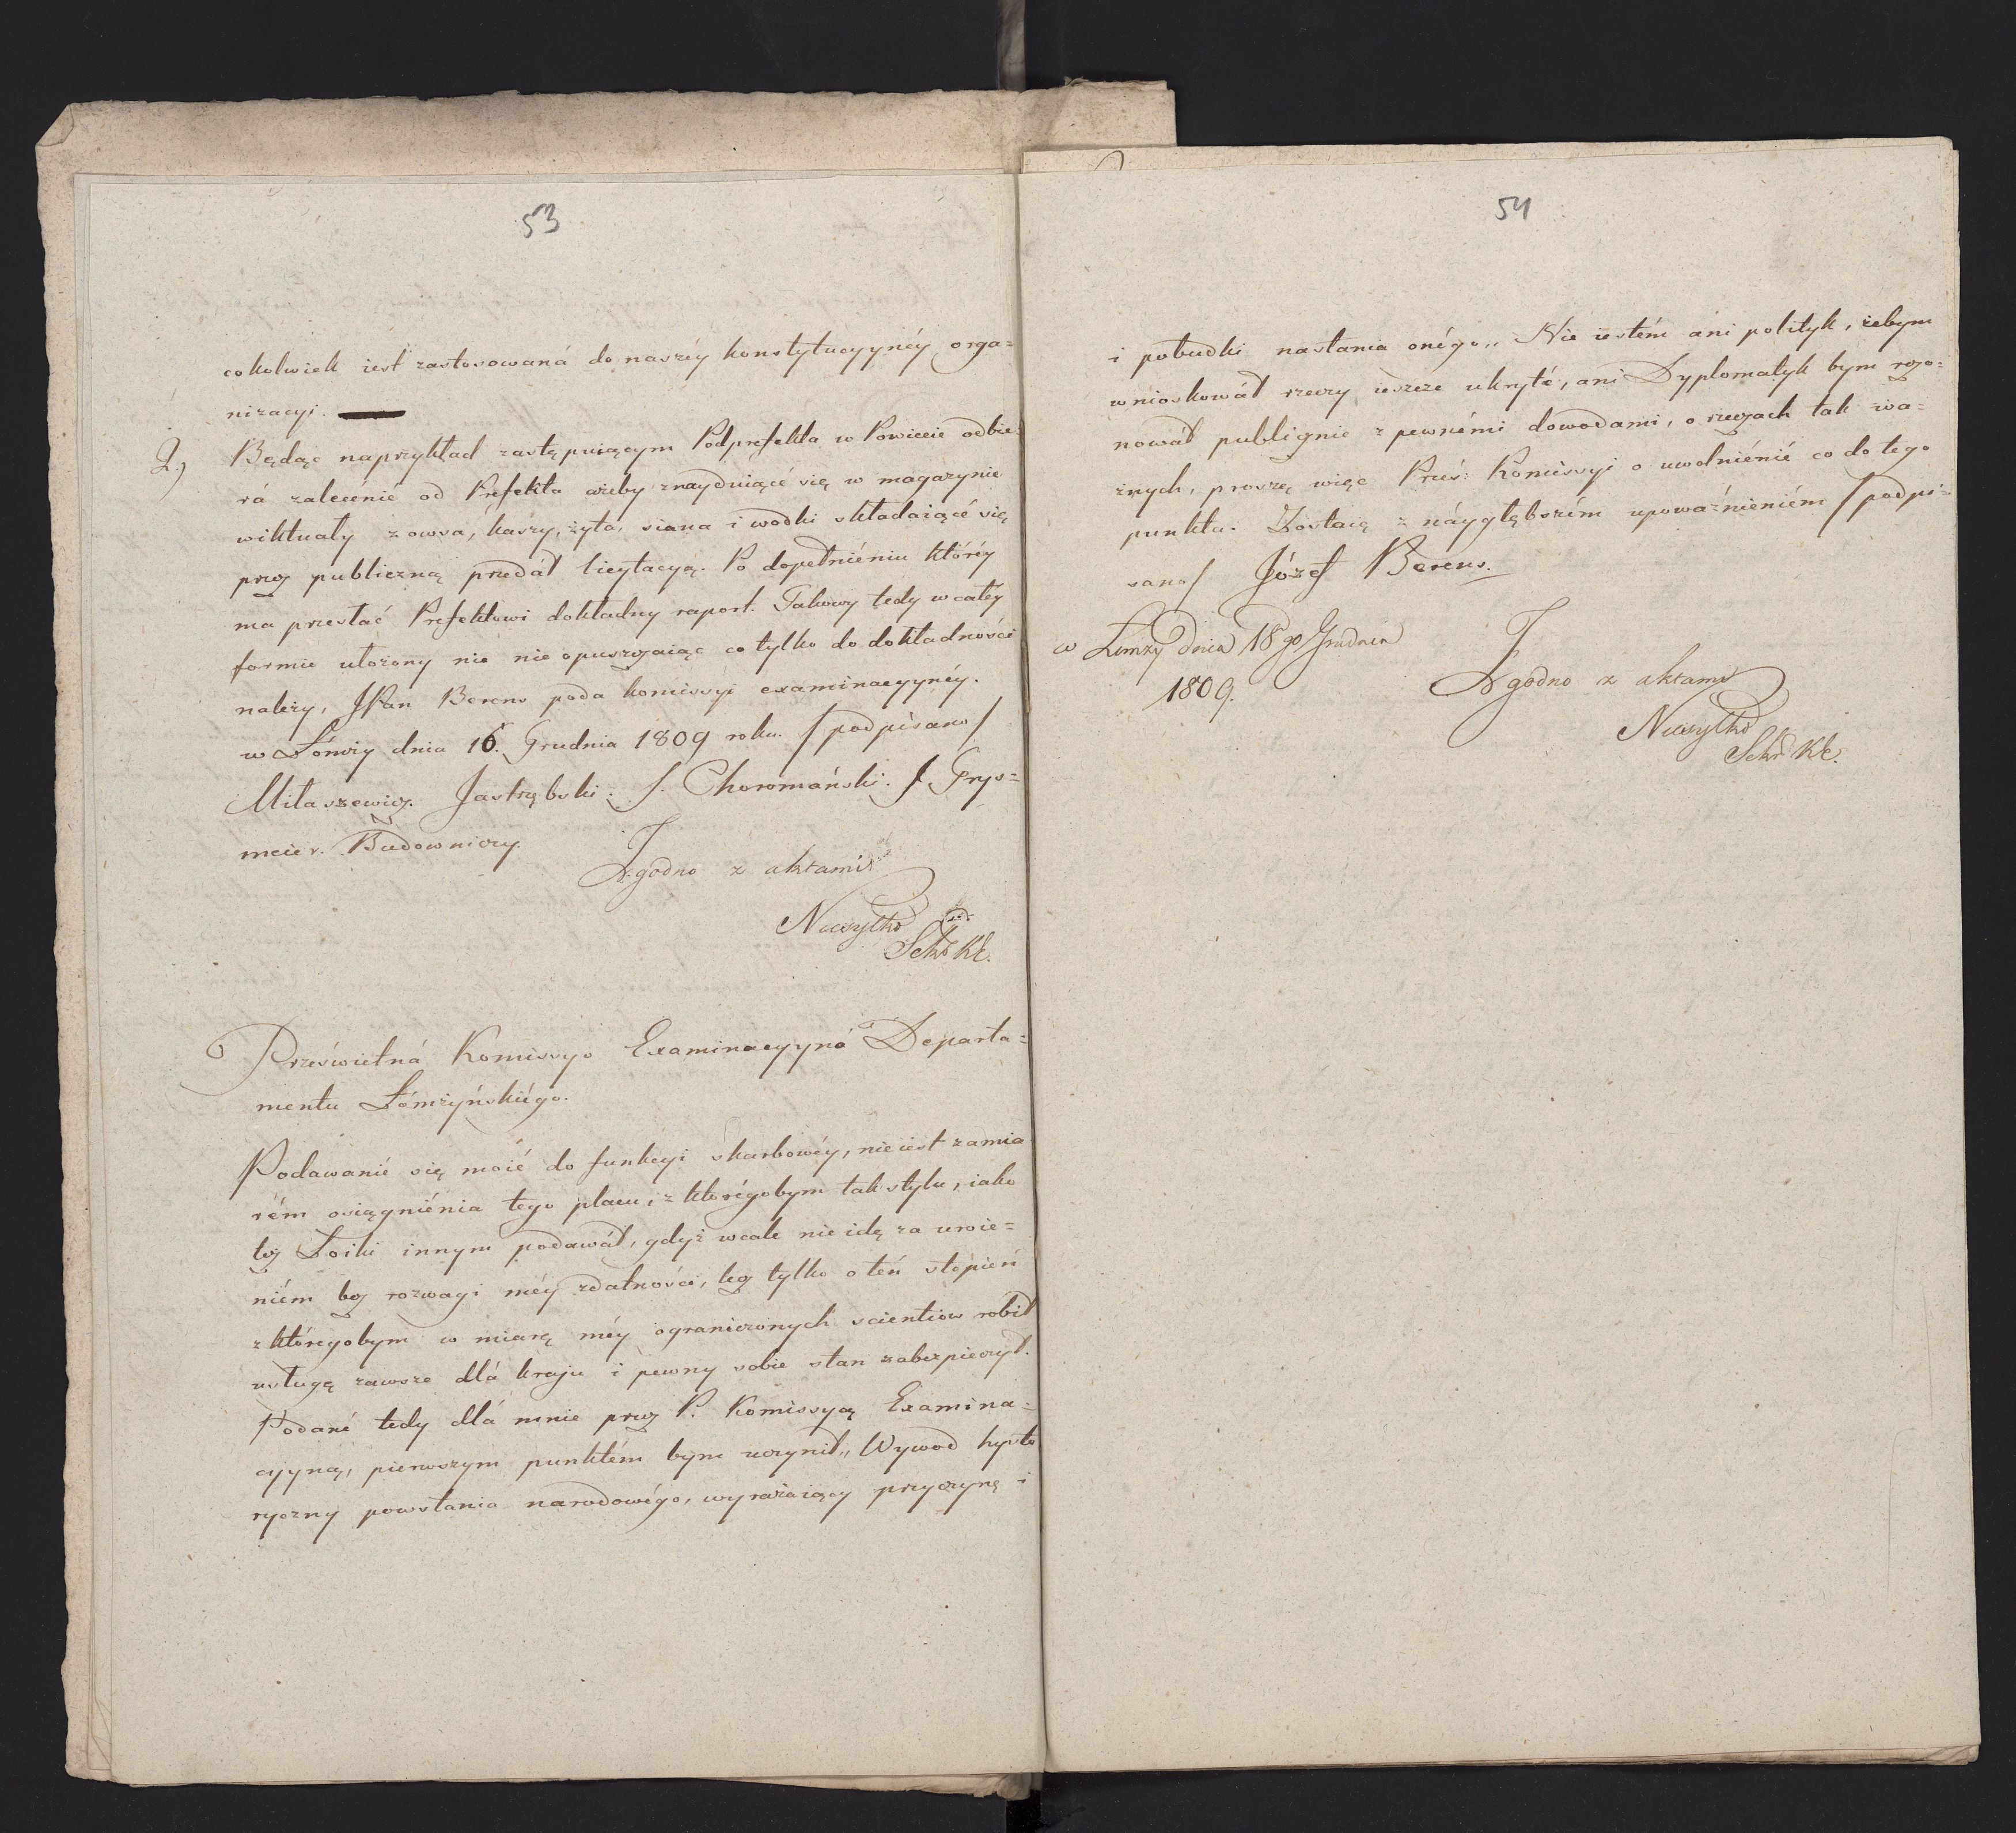 53
cokolwiek iest zastosowaná do naszéy konstytucyynéy orga=
nizacyi.
2.) Będąc naprzykład zastępuiącym Podprefekta w Powiecie odbie=
rá zalecénié od Prefekta ażeby znayduiącé się w magazynie
wiktuały z owsa, kaszy, żyta, siana i wodki składaiącé się
przez publiczną przedáł licytacyą. Po dopełniéniu któréy
ma przesłać Prefektowi dokładny raport. Takowy tedy w całéy
formie ułożony nic nie opuszczaiąc co tylko do dokładności
należy, JPan Berens poda komissyi examinacyynéy.
w Łómży dnia 16. Grudnia 1809 roku. /podpisano/
Miłaszewicz. Jastrzębski. S. Choromański. J. Grys=
meier. Budowniczy.
Zgodno z aktami
Sekr KE.
Prześwietná Komissyo Examinacyyná Departa=
mentu Łómżyńskiégo.
Podawanié się moié do funkcyi skarbowéy, nie iest zamia
rém osiągniénia tego placu, z którégobym tak stylu, iako
też Łoiki innym podawáł, gdyż wcale nie idę za unie=
niém bez rozwagi méy zdatności, lecz tylko o teń stopień
z którégobym w miarę méy ograniczonych scientiow robił
usługę zawsze dlá kraju i pewny sobie stan zabezpieczył.
Podané tedy dlá mnie przez P. Komissyą Examina=
cyyną, pierwszym punktém bym uczynił „Wywod hysto
ryczny powstania narodowégo, wyrażaiący przyczynę i
54
i pobudki nastania onégo„ Nie iestém ani polityk, żebym
wnioskowáł rzeczy ieszcze ukryté, ani Dyplomatyk bym rezo=
nowáł publicznie z pewnémi dowodami, o rzeczach tak wa=
żnych, proszę więc Prześ: Komissyi o uwolniénié co do tego
punktu. Zostaię z náygłębszém upoważnieniém /podpi=
sano/ Józef Berens.
w Łomży dnia 18go Grudnia
1809.
Zgodno z aktami
Sekr KE.